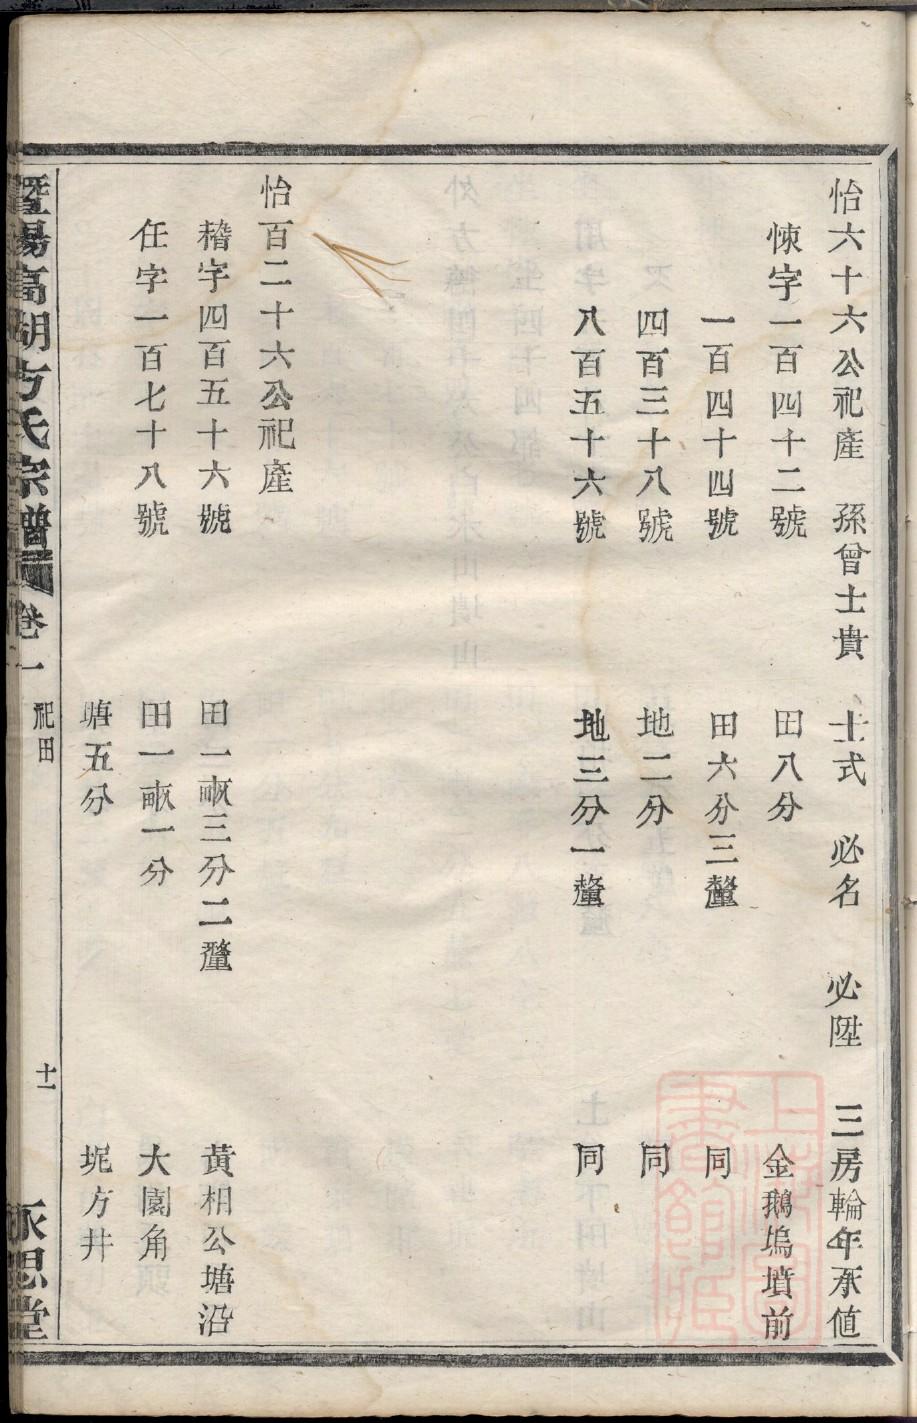 怡六十六公祀產　孫曾士貴　士式　必名　必陞　三房輪年承値
悚字一百四十二號　田八分　金鵝塢墳前
一百四十四號　田六分三釐　同
四百三十八號　地二分　同
八百五十六號　地三分一釐　同
怡百二十六公祀產
稽字四百五十六號　田一畝三分二釐　黃相公塘沿
任字一百七十八號　田一畝一分　大園角
塘五分　坭方井
暨陽高湖方氏宗譜　卷一　祀田　十一　永思堂
上海圖書館藏